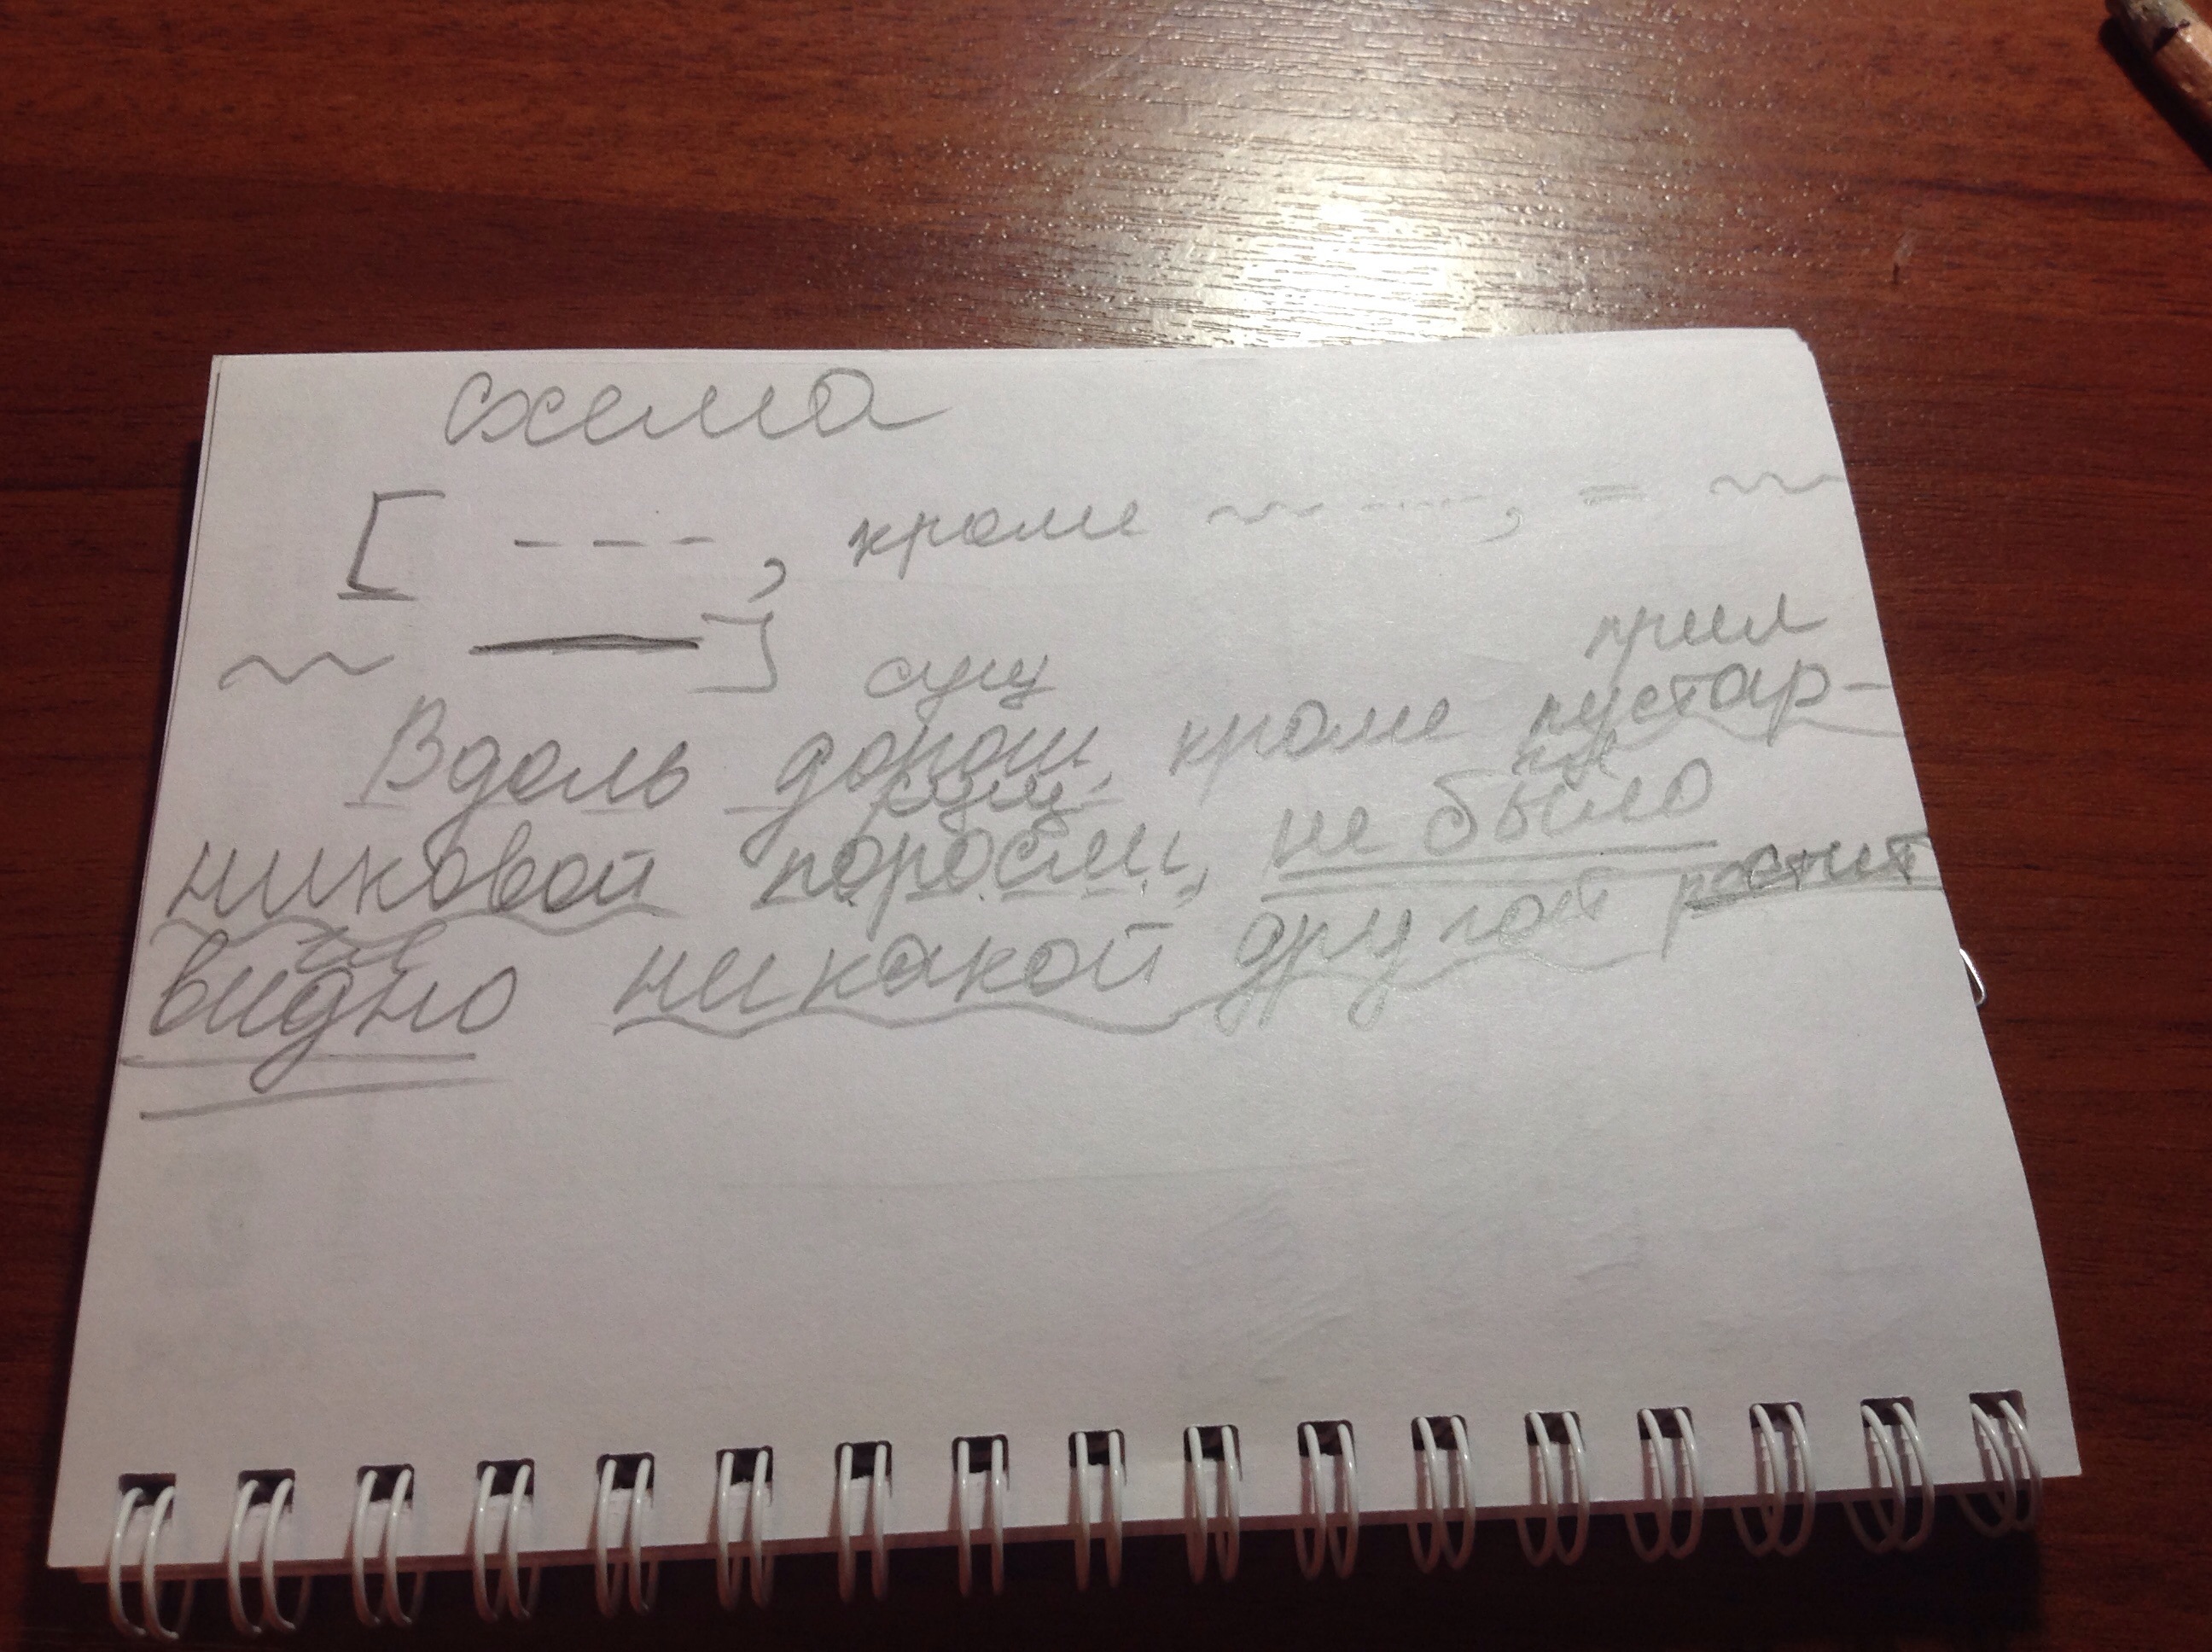 схема
[ - - - , кроме ~~ ----, = ~~
~~ — ]
сущ прил
Вдоль дороги, кроме пустар-
сущ. гл
никовой поросли, не было
гл
видно никакой другой растит